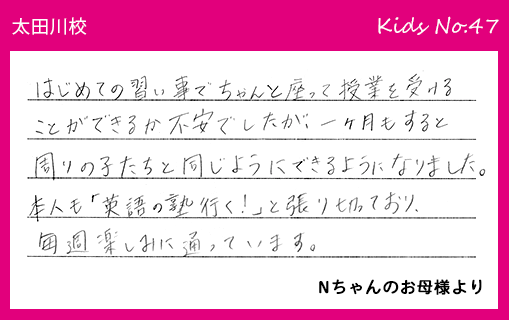 太田川校
Kids No.47
はじめての習い事でちゃんと座って授業を受ける
ことができるか不安でしたが、一ヶ月もすると
周りの子たちと同じようにできるようになりました。
本人も「英語の塾行く!」と張り切っており、
毎週楽しみに通っています。
Nちゃんのお母様より